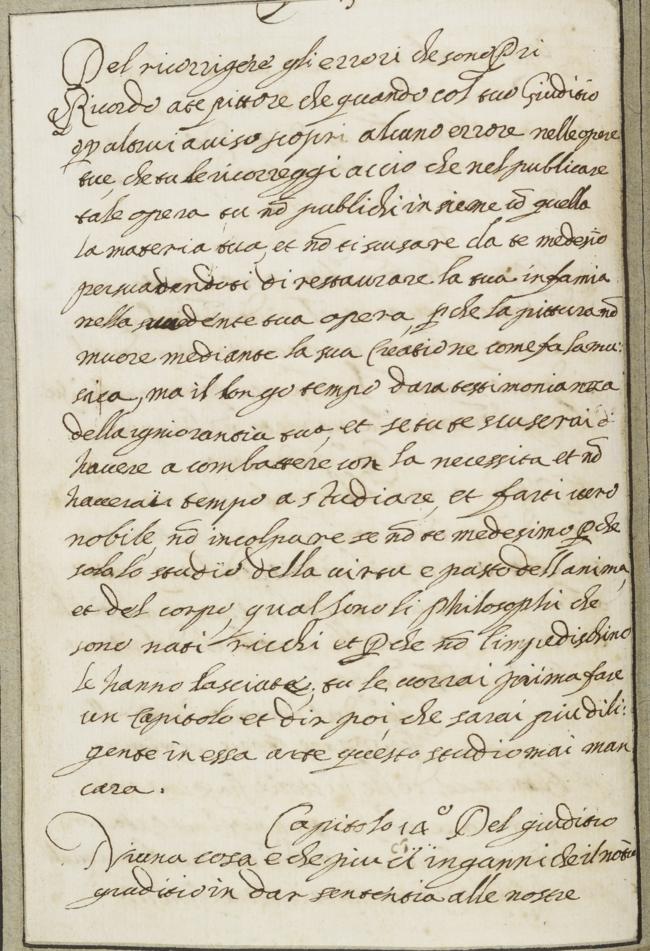 Del ricorrigere gli errori che sono P̄ri
Ricordo a te pittore che quando col tuo Giuditio
o p̄ altrui aviso scopri alcuno errore nelle opere
tue, che tu le ricorreggi accio che nel publicare
tale opera tu nō publichi insieme cō quella
la materia tua, et nō ti scusare da te medemō
persuadendoti di restaurare la tua infamia
nella sucedente tua opera p̄che la pittura nō
muore mediante la sua Creatione come fa la mu:
sica, ma il longo tempo dara testimonianza
della igniorantia tua, et se tu te scuserai d
havere a combattere con la necessita et nō
haverai tempo a studiare, et farti vero
nobile, nō incolpare se nō te medesimo p̄che
solo lo studio della virtu e pasto dell anima,
et del corpo, qual sono li Philosophi che
sono nati ricchi et p̄che nō l impedischino
le hanno lasciate, tu le vorrai prima fare
un Capitolo et dir poi che sarai piu dili:
gente in essa arte questo studio mai man
cara.
Capitolo 14° Del giuditio
Niuna cosa e che piu ci inganni che il nōtro
giuditio in dar sententia alle nostre